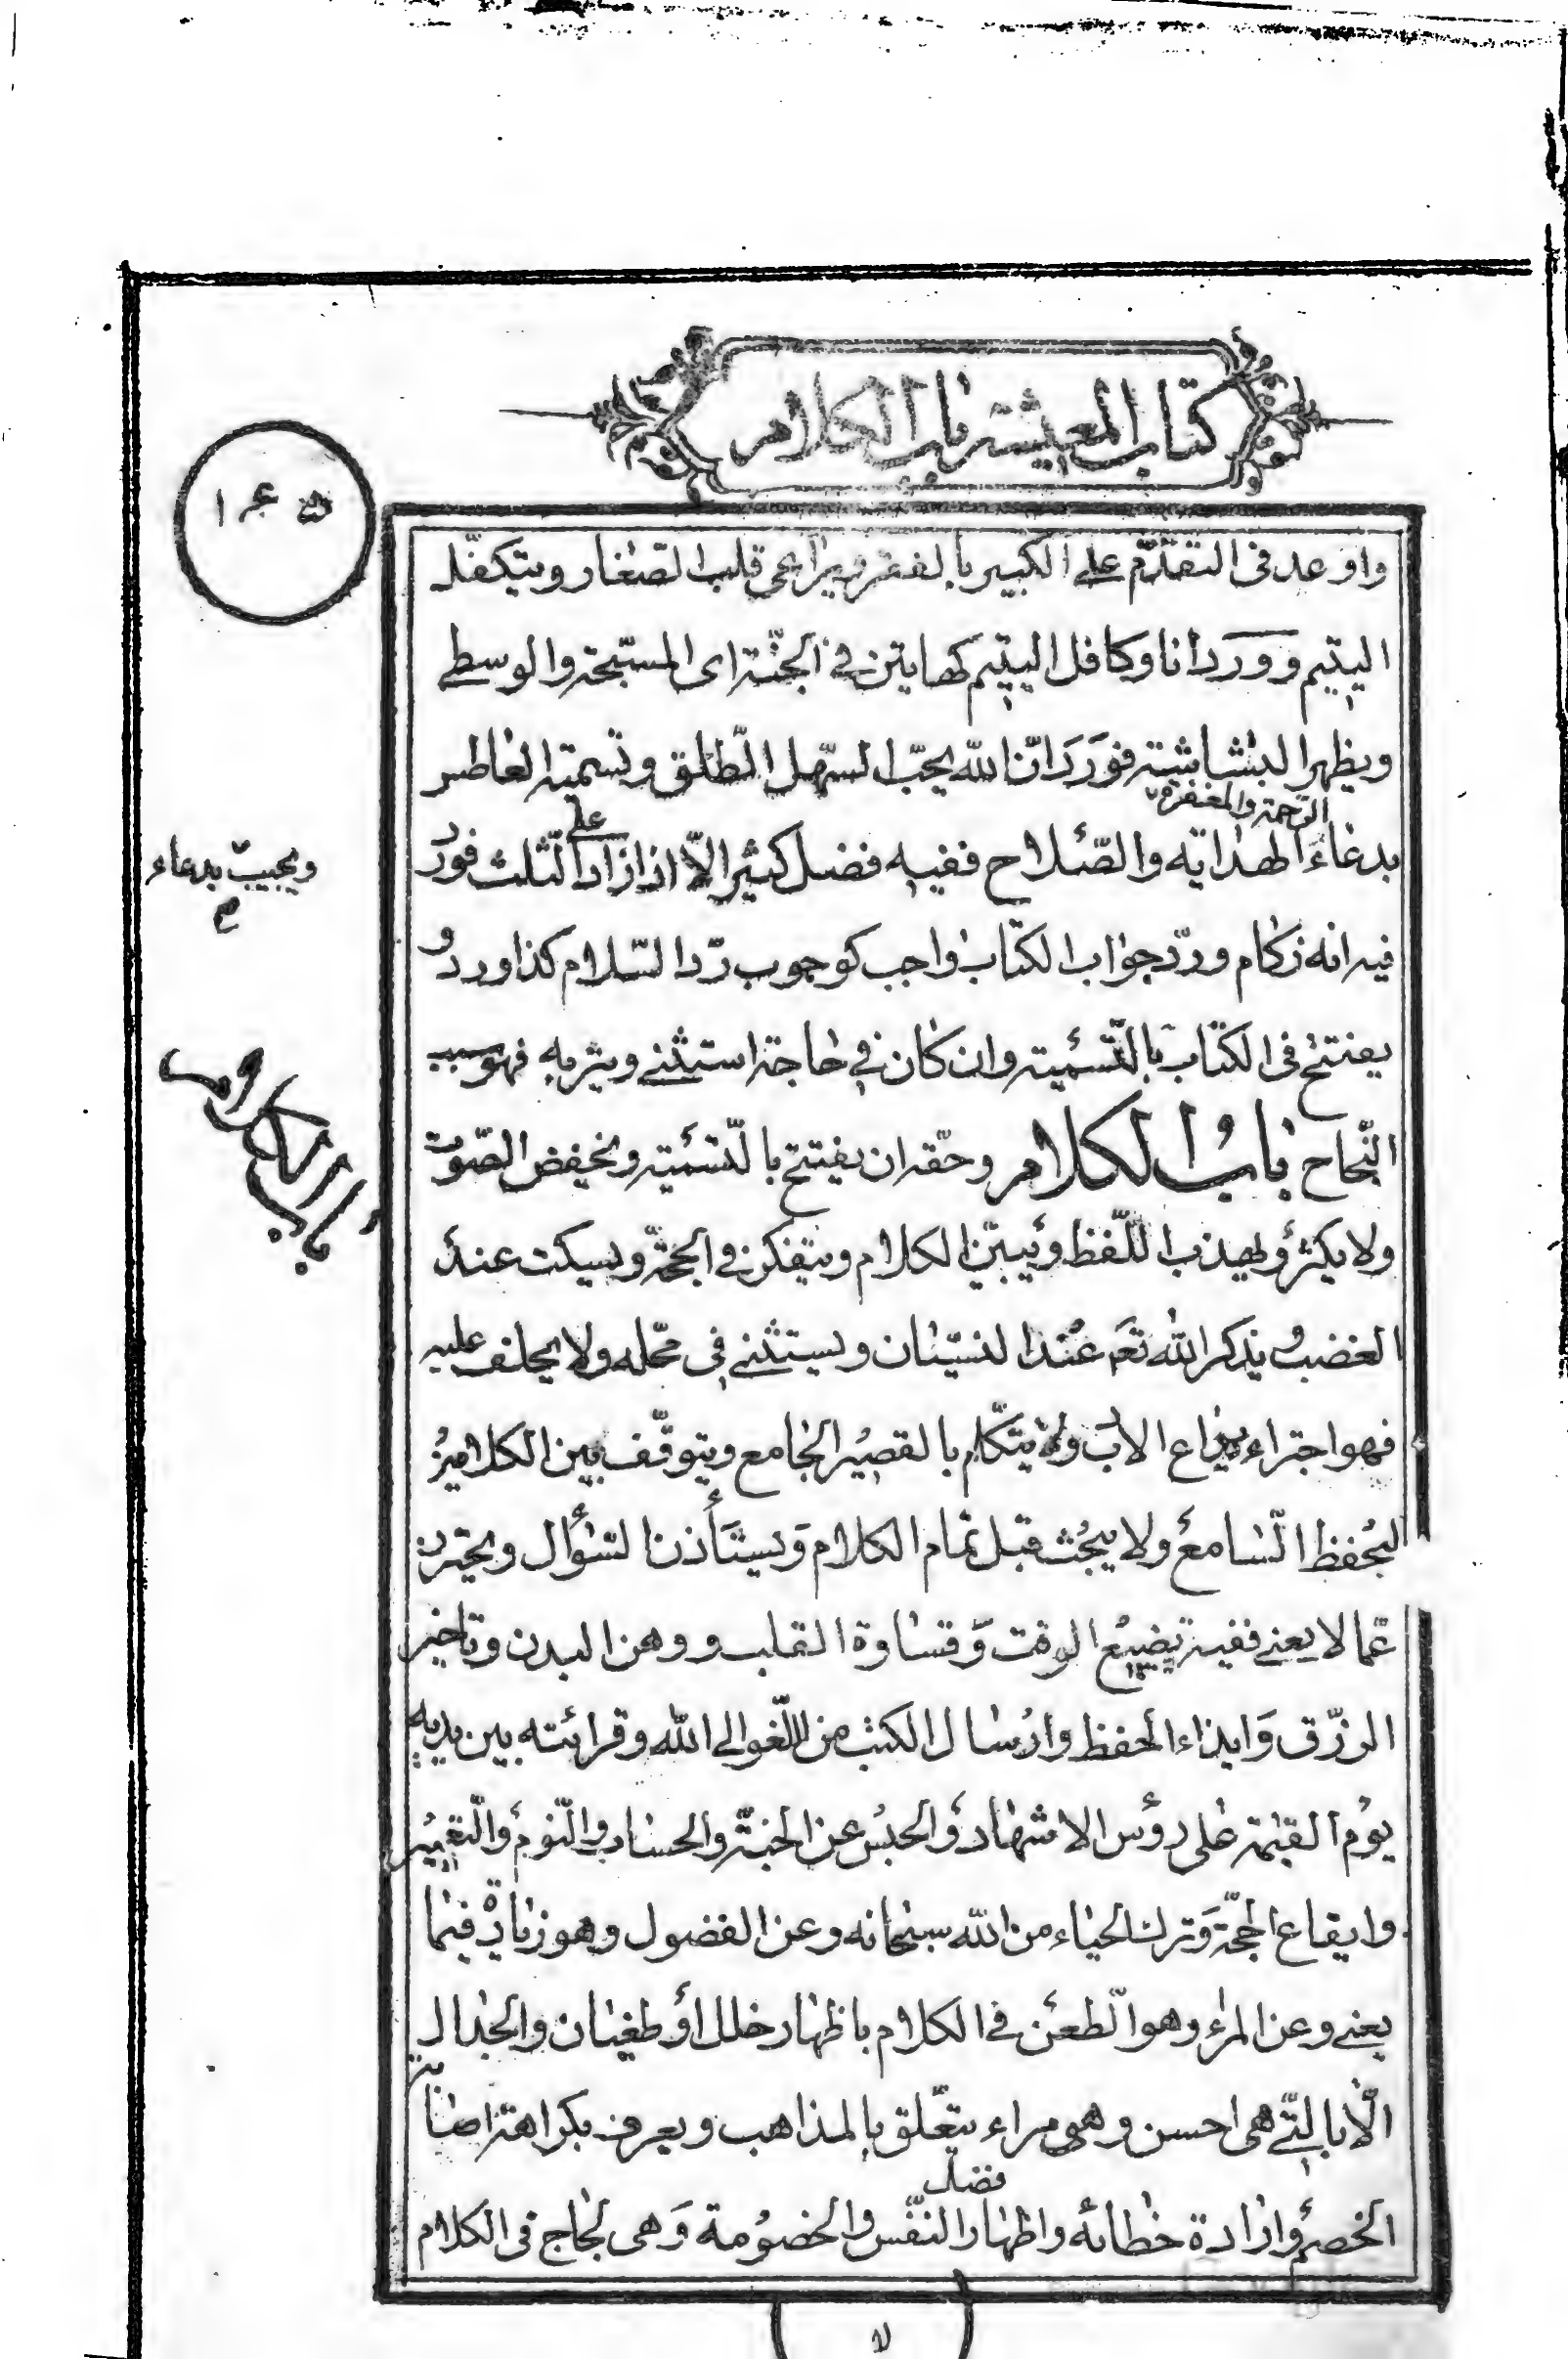 كتاب المعيشة باب الكلام
واوعد في التقدّم على الكبير بالفقر ويراعى قلب الصّغار ويتكفّل
اليتيم وورد انا وكافل اليتيم كهاتين في الجنّة اى المسبّحة والوسطى
ويظهر البشاشة فورد انّ الله يحبّ السّهل الطّلق وتسمية العاطس
الرّحمة والمغفرة
بدعاء الهداية والصّلاح ففيه فضل كثير الّا اذا زاد على الثّلث فورد
ويجيب بدعاء
فيه انه زكام وردّ جواب الكتاب واجب كوجوب ردّ السّلام كذا ورد و
يفتتح في الكتاب بالتّسمية وان كان في حاجة استثنى ويتربه فهو سبب
النّجاح باب الكلام وحقّه ان يفتتح بالتّسمية ويخفض الصّوت
باب الكلام
ولا يكثر ويهذب اللّفظ ويبيّن الكلام ويتفكر في الحجّة ويسكت عند
الغضب ويذكر الله تعالى عند النسيان ويستثنى في محلّه ولا يحلف عليه
فهو اجتراء الاب ولا يتكلّم بالقصير الجامع ويتوقّف بين الكلامين
ليحفظ السّامع ولا يبحث قبل تمام الكلام ويستأذن السّؤال ويحترز
عمّا لا يعنى ففيه تضييع الوقت وقساوة القلب ووهن البدن وتاخير
الرزق وايذاء الحفظة وارسال الكتب من اللّغو الى الله وقرائته بين يديه
يوم القيمة على رؤس الاشهاد والحبس عن الجنّة والحساب واللّوم والتّعيير
وايقاع الحجّة وترك الحياء من الله سبحانه وعن الفضول وهو زيادة فيما
يعنى وعن المراء وهو الطّعن في الكلام باظهار خلل او طغيان والجدال
الّا بالّتي هى احسن وهى مراء يتعلّق بالمذاهب ويعرف بكراهة اصابة
الخصم وارادة خطائه واظهار فضل النّفس والخصومة وهى لجاج في الكلام